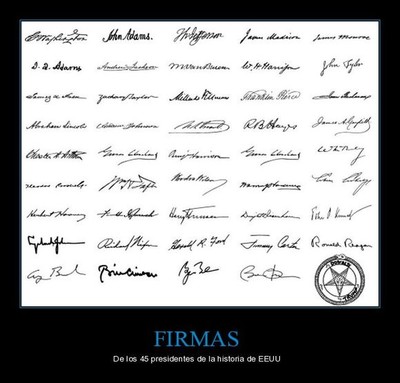 G. Washington John Adams. Th. Jefferson James Madison James Monroe
J. Q. Adams Andrew Jackson M. Van Buren W. H. Harrison John Tyler
Zachary Taylor Millard Fillmore Franklin Pierce James Buchanan
Abraham Lincoln Andrew Johnson U.S. Grant R B Hayes James A. Garfield
Chester A. Arthur Grover Cleveland Benj. Harrison Grover Cleveland
Theodore Roosevelt Wm H Taft Woodrow Wilson Warren Harding
Herbert Hoover Harry Truman Dwight Eisenhower John F. Kennedy
Richard Nixon Gerald R. Ford Jimmy Carter Ronald Reagan
DONALD
TRUMP
FIRMAS
De los 45 presidentes de la historia de EEUU